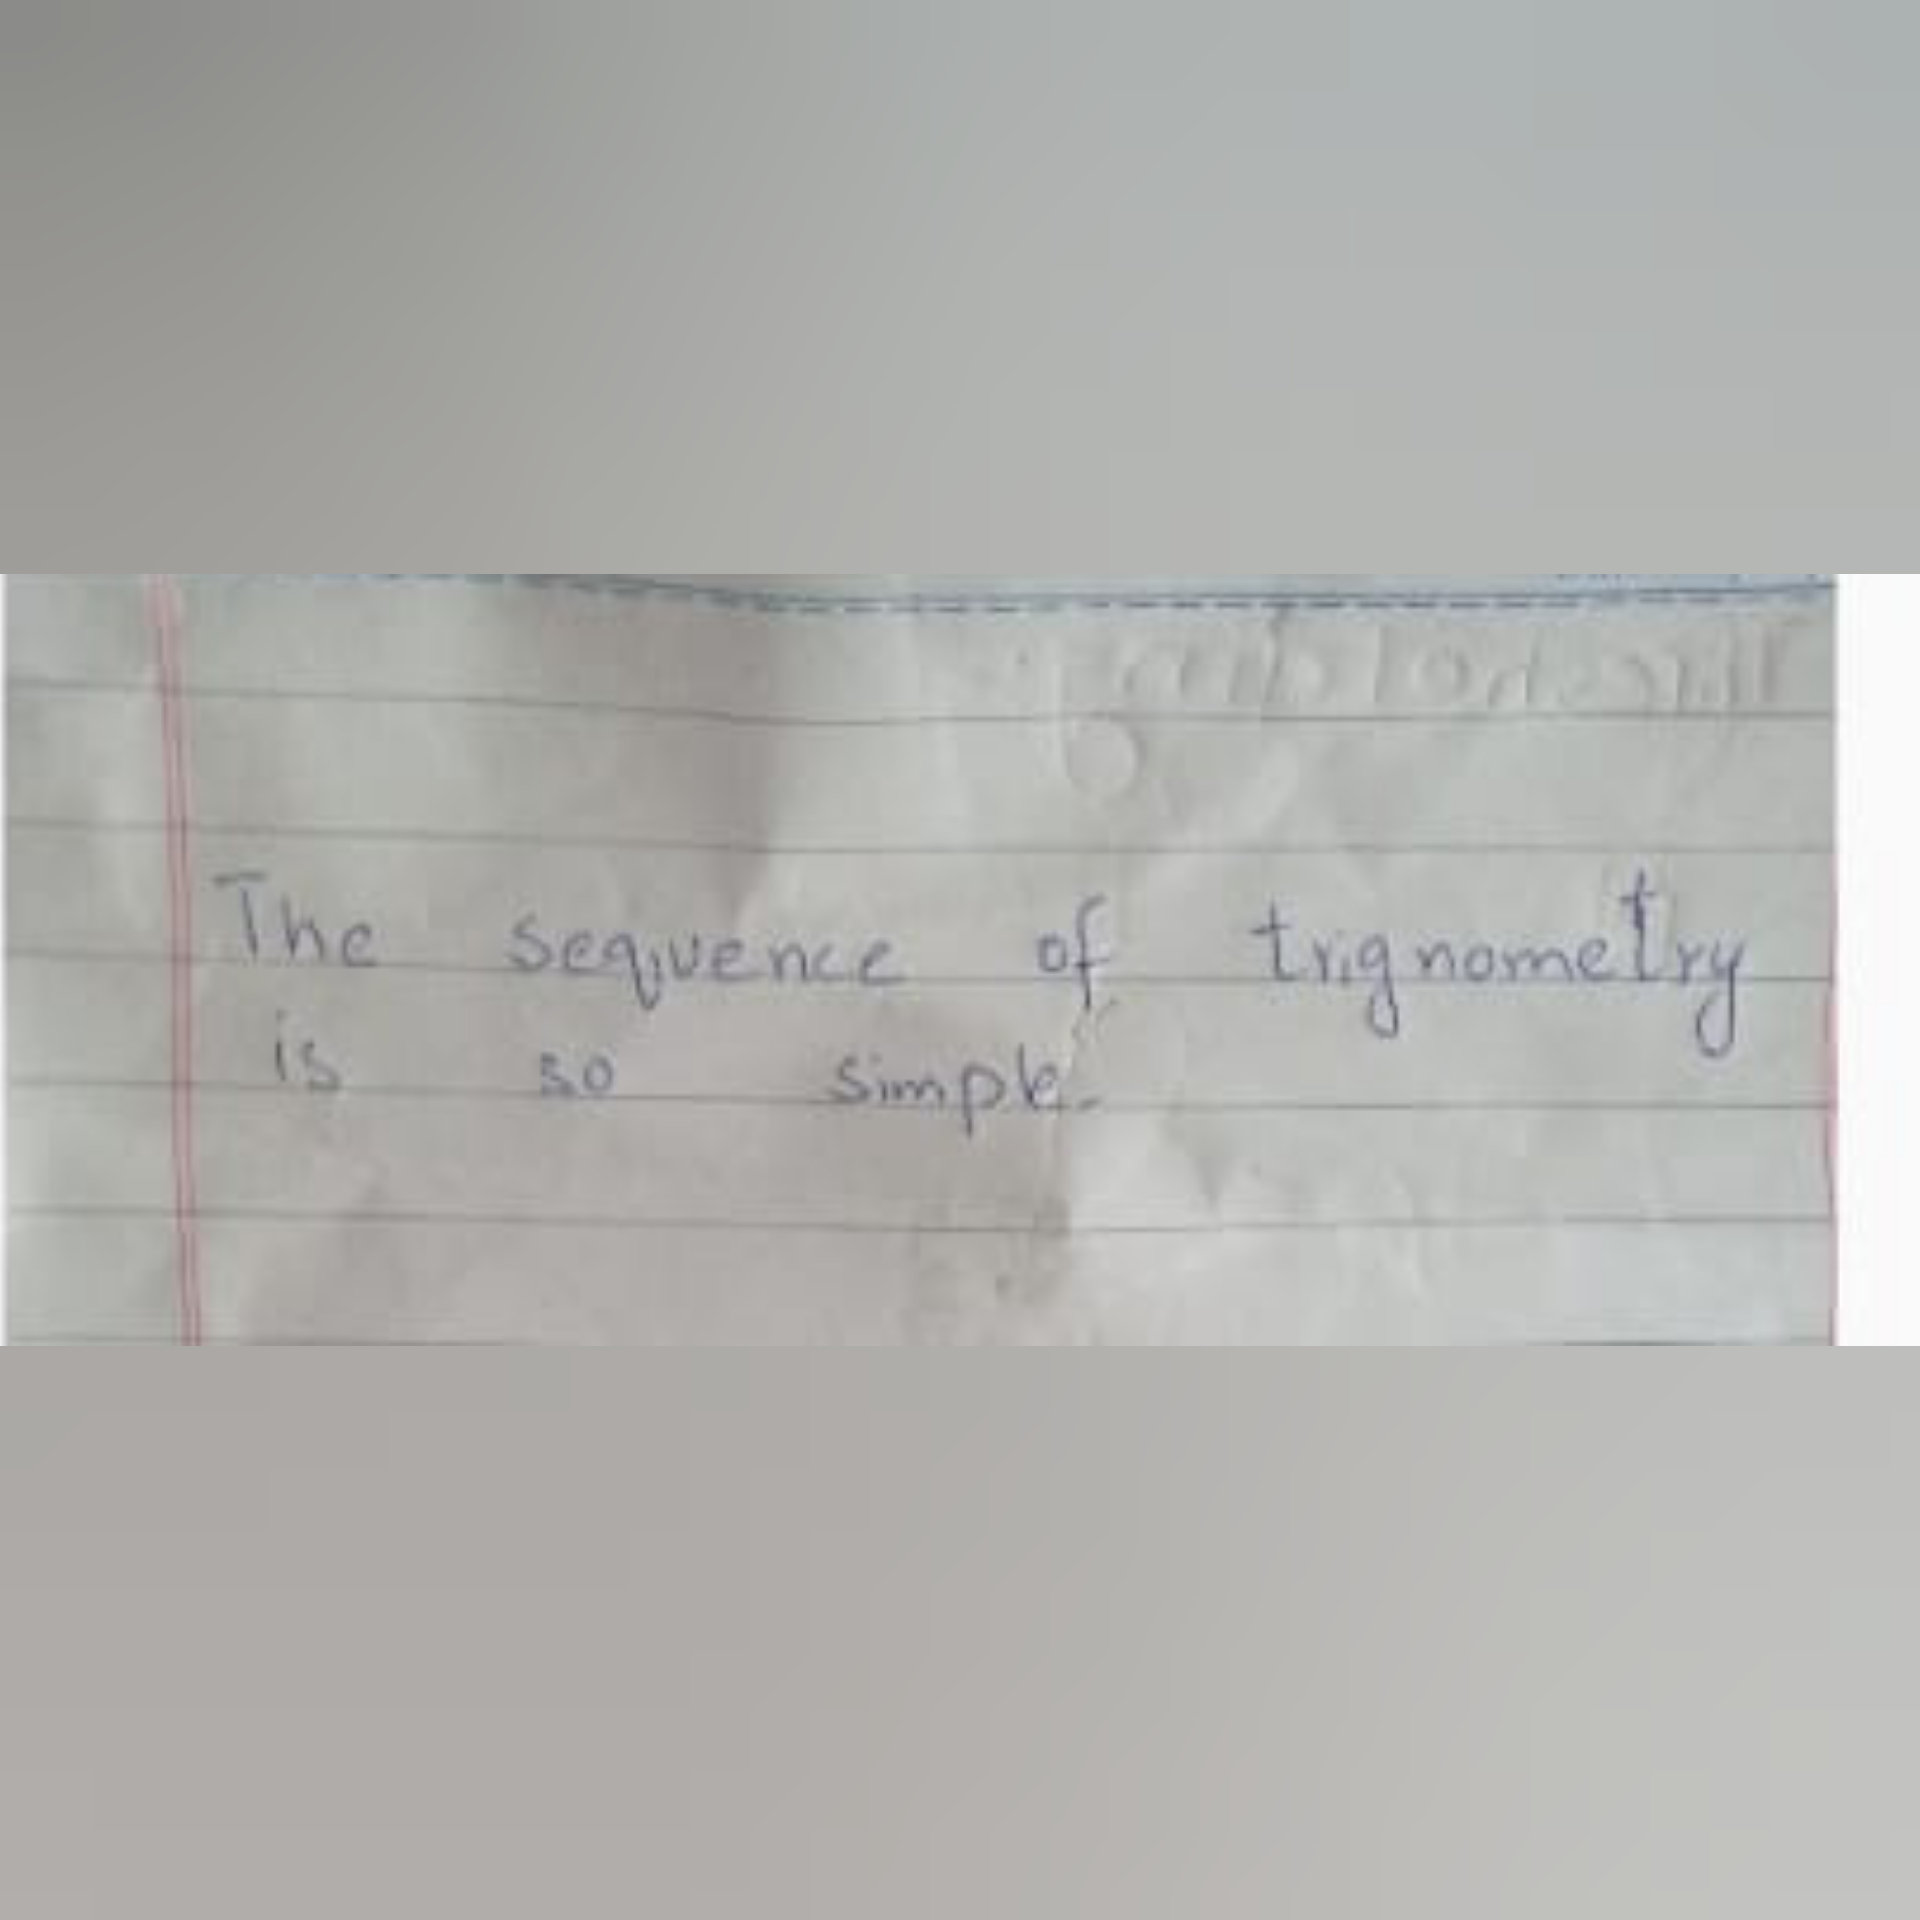 The sequence of trignometry
is so simple.